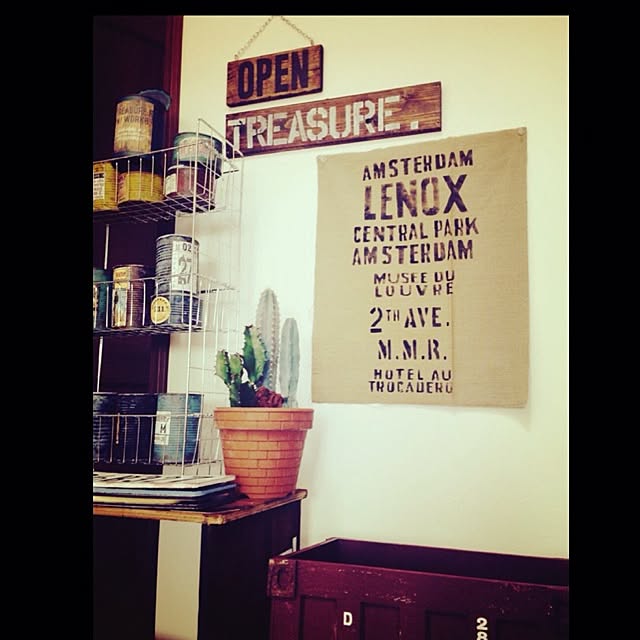 OPEN
TREASURE.
AMSTERDAM
LENOX
CENTRAL PARK
AMSTERDAM
MUSÉE DU
LOUVRE
2TH AVE.
M.M.R.
HOTEL AU
TROCADERO
TREASURE
WORK
#02
M
D
28